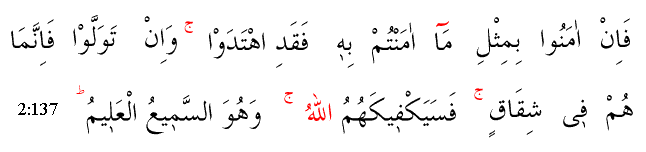 فَاِنْ اٰمَنُوا بِمِثْلِ مَٓا اٰمَنْتُمْ بِه۪ فَقَدِ اهْتَدَوْاۚ وَاِنْ تَوَلَّوْا فَاِنَّمَا
هُمْ ف۪ي شِقَاقٍۚ فَسَيَكْف۪يكَهُمُ اللّٰهُۚ وَهُوَ السَّم۪يعُ الْعَل۪يمُۜ 2:137